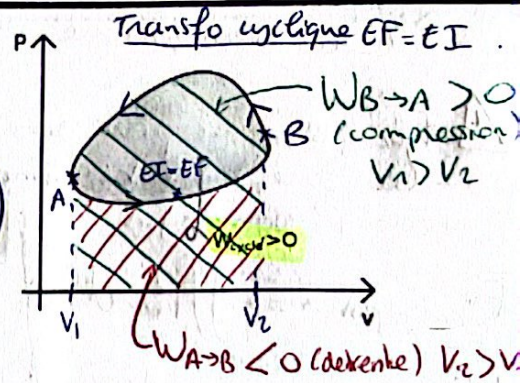 Transfo cyclique EF=EI.
P
WB→A > 0
(compression)
V1 > V2
B
EI=EF
A
Wcycle>0
V1
V2
V
WA→B < 0 (detente) V2 > V